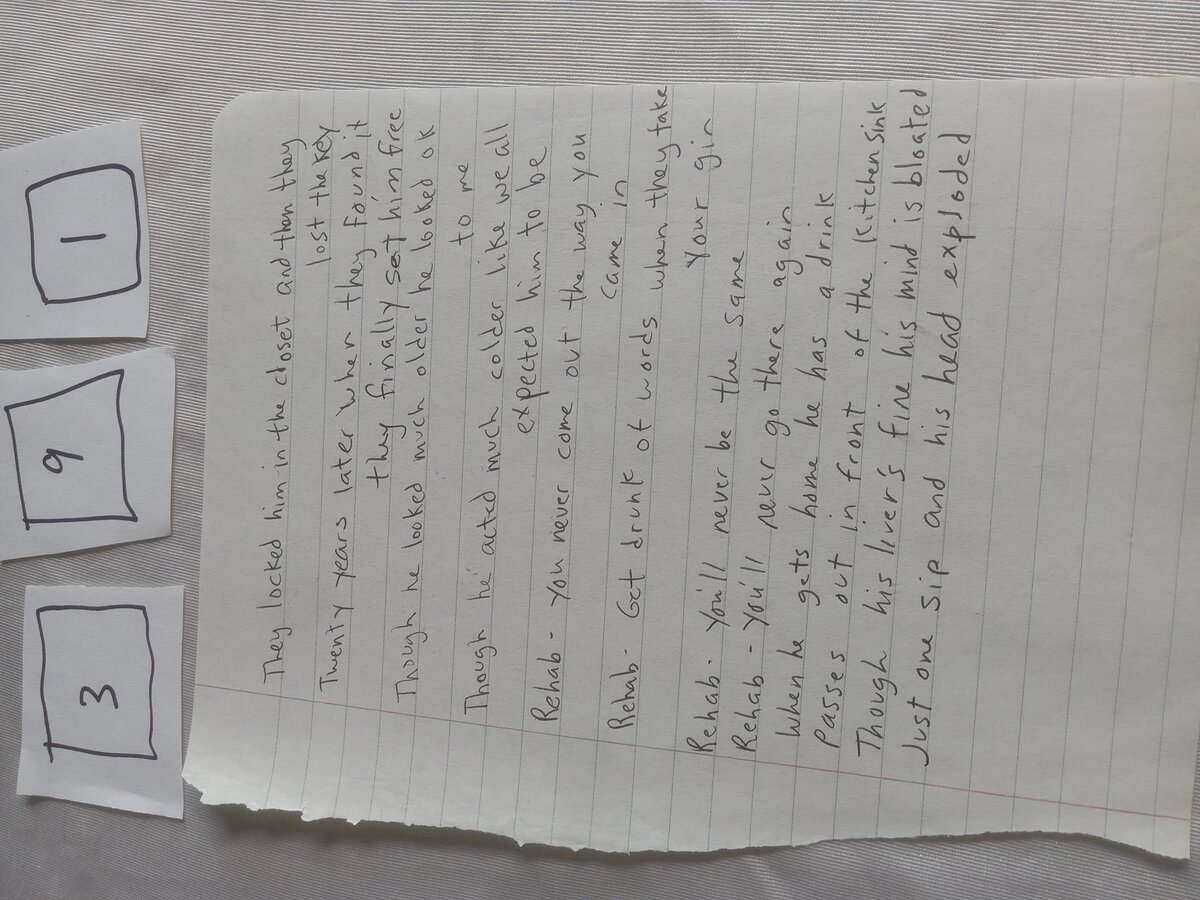 3 9 1
They locked him in the closet and then they
lost the key
Twenty years later when they found it
they finally set him free
Though he looked much older he looked ok
to me
Though he acted much colder like we all
expected him to be
Rehab - you never come out the way you
came in
Rehab - Get drunk of words when they take
your gin
Rehab - You'll never be the same
Rehab - you'll never go there again
When he gets home he has a drink
Passes out in front of the kitchen sink
Though his liver's fine his mind is bloated
Just one sip and his head exploded